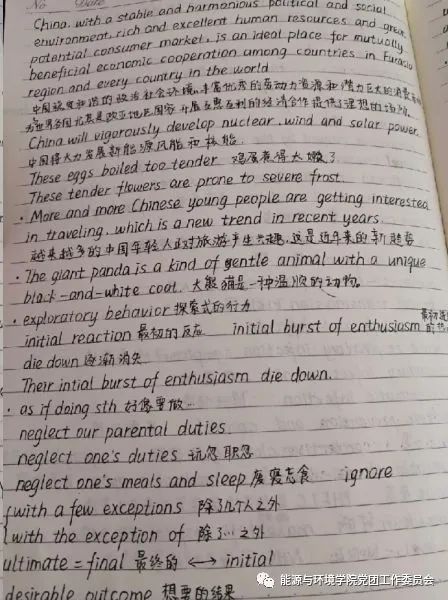 No Date
China, with a stable and harmonious political and social
environment, rich and excellent human resources and great
potential consumer market, is an ideal place for mutually
beneficial economic cooperation among countries in Eurasia
region and every country in the world.
中国稳定和谐的政治社会环境,丰富优秀的劳动力资源和潜力巨大的消费市场
为世界各国尤其是欧亚地区国家开展互惠互利的经济合作提供了理想的场所.
China will vigorously develop nuclear, wind and solar power.
中国将大力发展新能源风能和核能.
These eggs boiled too tender 鸡蛋煮得太嫩了
These tender flowers are prone to severe frost.
· More and more Chinese young people are getting interested
in traveling, which is a new trend in recent years.
越来越多的中国年轻人对旅游产生兴趣,这是近年来的新趋势
· The giant panda is a kind of gentle animal with a unique
black-and-white coat. 大熊猫是一种温顺的动物。
· exploratory behavior 探索式的行为
initial reaction 最初的反应 initial burst of enthusiasm 最初
die down 逐渐消失
Their intial burst of enthusiasm die down.
· as if doing sth 好像要做…
neglect our parental duties.
neglect one's duties 玩忽职忽
neglect one's meals and sleep 废寝忘食 ignore
with a few exceptions 除了几个人之外
with the exception of 除了…之外
ultimate = final 最终的 ↔ initial
desirable outcome 想要的结果
能源与环境学院党团工作委员会